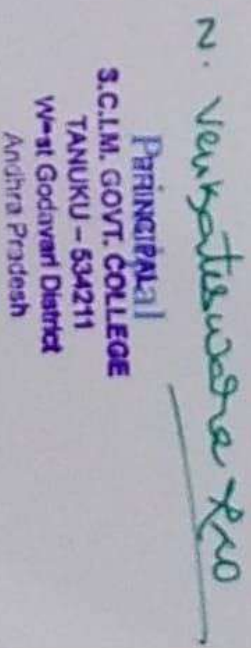 N. Venkateswara Rao
PRINCIPAL
S.C.I.M. GOVT. COLLEGE
TANUKU – 534211
West Godavari District
Andhra Pradesh